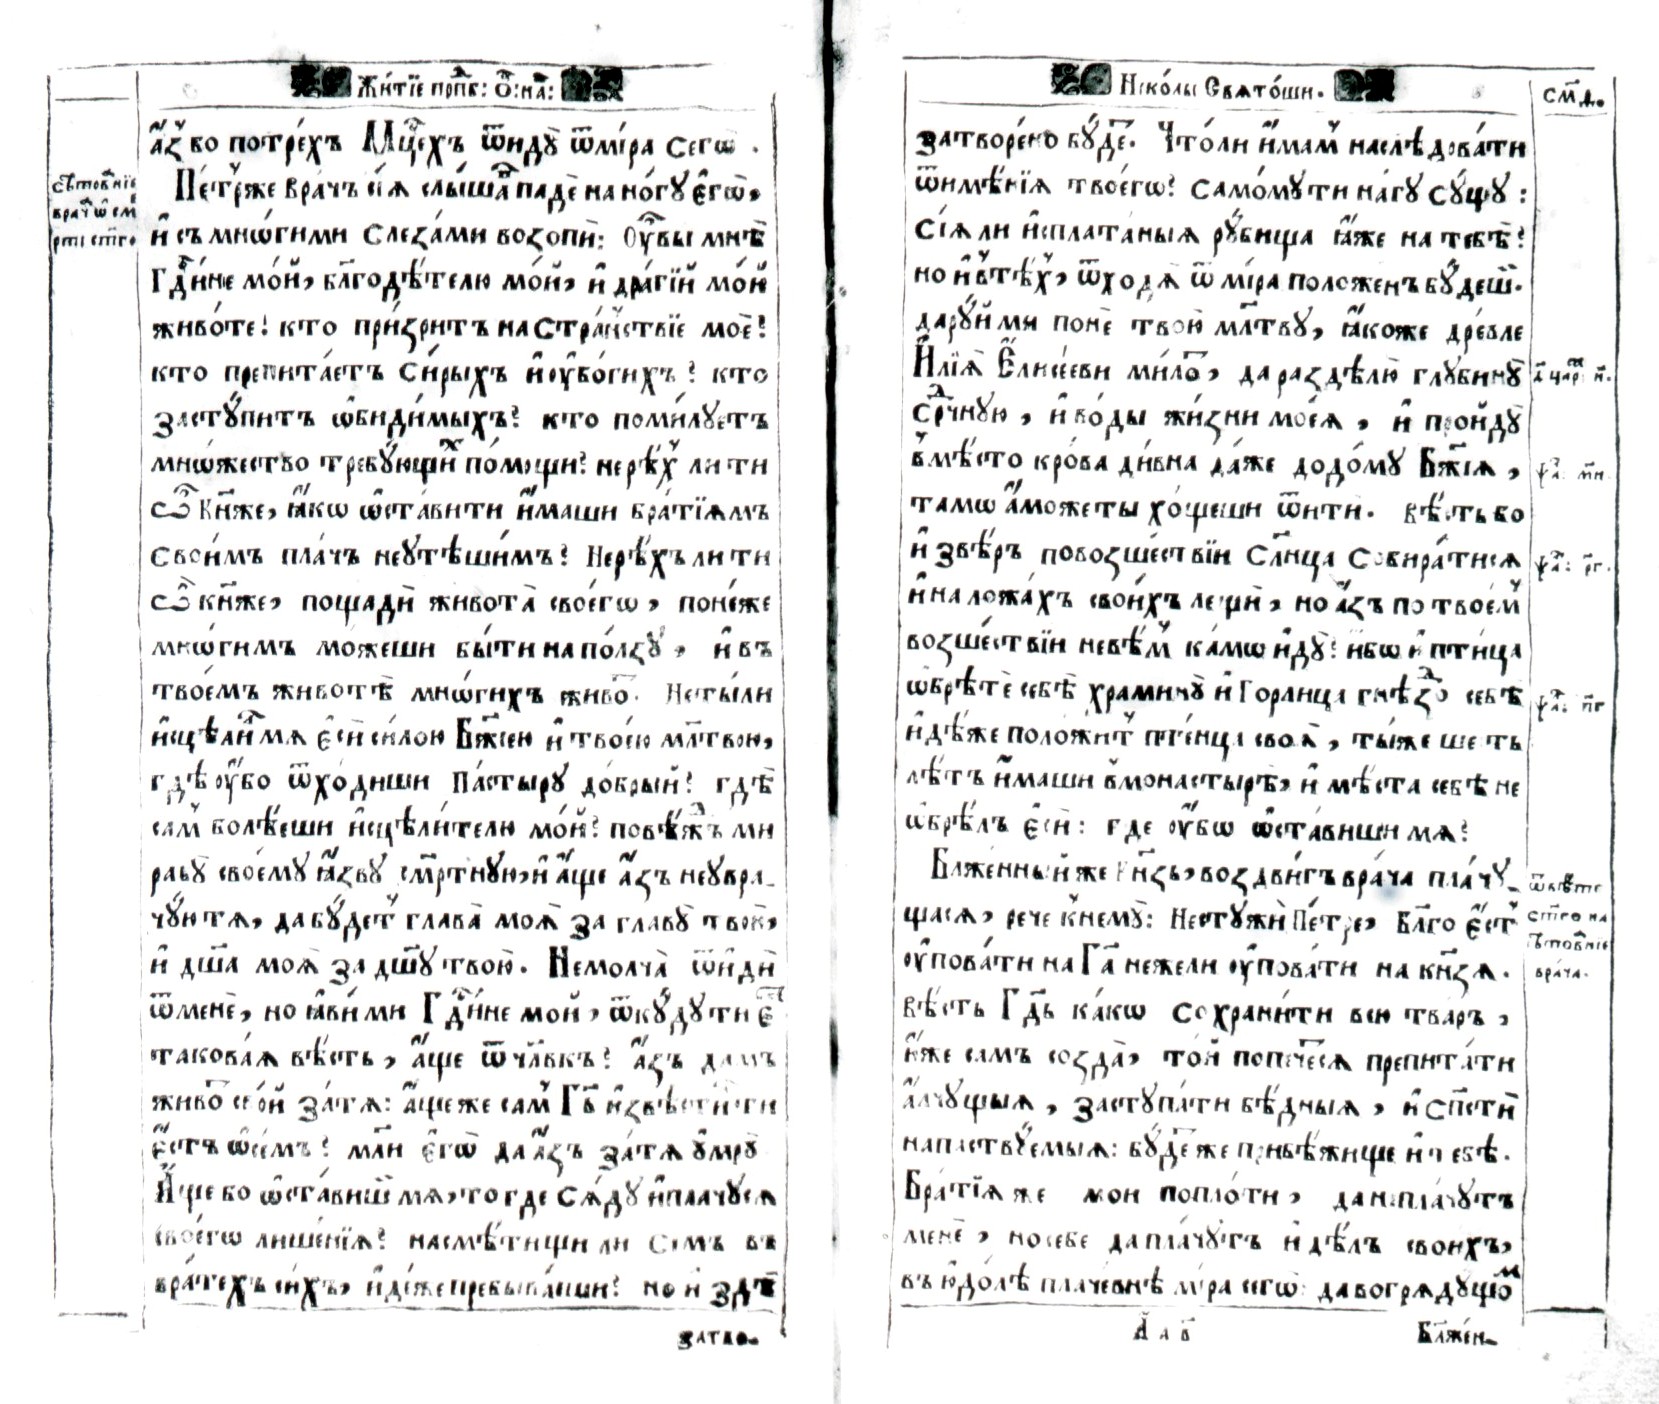 Жи́тїе прпⷣб: Ѻ҃: на́:
а҆́зⸯ бо потре́хъ Мц҃ехъ ѿидꙋ̀ ѿмі́ра сегѡ̀.
Пе́трⸯже вра́чъ сїѧ̀ слы́шаⷡ падѐ на но́гꙋ є҆гѡ̀,
и҆ съ мнѡ́гими слеза́ми возопѝ: Оу҆вы̀ мнѣ̀
Гдⷭ҇и́не мо́й, блг҃одѣ́телю мо́й, и҆ драгі́й мо́й
живо́те! кто при́зритъ на Стра́нствїе моѐ?
кто препита́етъ Си́рыхъ и҆ оу҆бо́гихъ? кто
застꙋ́питъ ѡ҆би́димыхъ? кто поми́лꙋетъ
мнѡ́жество требꙋ́ющиⷯ по́мощи? не рѣ́хⸯ ли ти
Ѽ Кнѧ҃же, ꙗ҆́кѡ ѡ҆ста́вити и҆́маши бра́тїѧмъ
свои́мъ пла́чъ неꙋтѣши́мъ? Нерѣ́хъ ли ти
ѽ кнѧ҃же, пощадѝ живота̀ своегѡ̀, поне́же
мнѡ́гимъ мо́жеши бы́ти на по́лзꙋ, и҆ въ
твое́мъ животѣ̀ мнѡ́гихъ живо́ⷮ. Неты́ли
и҆сцѣли́лⸯ мѧ є҆сѝ си́лою Бж҃їею и҆ твое́ю мл҃твою,
гдѣ̀ оу҆́бо ѿхо́диши Па́стырꙋ до́брый? гдѣ̀
са́мⸯ болѣ́еши и҆сцѣли́телю мо́й? повѣ́жⷣъ ми
рабꙋ̀ своемꙋ̀ ꙗ҆́звꙋ см҃ртнꙋю, и҆ а҆́ще а҆́зъ неꙋвра-
чꙋ́ю тѧ, да бꙋ́детⸯ глава̀ моѧ̀ за главꙋ̀ твою̀,
и҆ дш҃а моѧ̀ за дш҃ꙋ твою̀. Немолча̀ ѿидѝ
ѿменѐ, но ꙗ҆ви́ ми Гдⷭ҇и́не мой, ѿкꙋ́дꙋ ти є҆́ⷭ
такова́ѧ вѣ́сть, а҆́ще ѿ члв҃къ? а҆́зъ да́мъ
живо́ⷮ сво́й за́тѧ: а҆́щеже са́мⸯ Гь҃ и҆звѣсти́ти
є҆́сть ѡ҆се́мъ? мл҃и є҆гѡ̀ да а҆́зъ за́тѧ оу҆мрꙋ̀
А҆́ще бо ѡ҆ста́вишⸯ мѧ, то где Сѧ́дꙋ и҆ плачꙋ́сѧ
своегѡ̀ лише́нїѧ? на смѣ́тищи ли Се́мъ въ
вра́техъ си́хъ, и҆дѣ́же пребыва́еши? но и҆ здѣ̀
затво-
сѣтова́нїе
врачⷶ ѡ҆ см҃е
рти ст҃гѡ
Нїко́лы Свѧто́ши.
см҃д.
затворе́но бꙋ́деⷮ. Что́ли и҆́мамⸯ наслѣ́довати
ѿимѣ́нїѧ твоегѡ̀? Самомꙋ́ти на́гꙋ сꙋ́щꙋ:
Сїѧ́ ли и҆сплата́ныѧ рꙋ́бища ꙗ҆́же на тебѣ̀?
но и҆ вⸯтѣ́хⸯ, ѿходѧ̀ ѿ мі́ра положе́нъ бꙋ́дешⸯ.
дарꙋ́й ми понѐ твою̀ мл҃твꙋ, ꙗ҆́коже дре́вле
И҆лїѧ̀ Є҆лисе́еви ми́лоⷮ, да раздѣлю̀ глꙋбинꙋ̀
срⷣчнꙋю, и҆ во́ды жи́зни моеѧ̀, и҆ пройдꙋ̀
вⸯмѣ́сто кро́ва ди́вна да́же додо́мꙋ Бж҃їѧ,
тамѡ а҆́може ты̀ хо́щеши ѿитѝ. Вѣ́сть бо
и҆ звѣ́рь повозше́ствїи Сл҃нца Собира́тисѧ
и҆ на ложа́хъ свои́хъ лещѝ, но а҆́зъ по твое́мⸯ
возше́ствїи невѣ́мⸯ ка́мѡ и҆дꙋ̀? и҆́бѡ и҆ пти́ца
ѡ҆брѣ́те себѣ̀ хра́минꙋ и҆ Го́рлица гнѣздо̀ себѣ̀
и҆дѣ́же положи́тⸯ птенца̀ своѧ̀, ты́же ше́сть
лѣ́тъ и҆́маши вⸯмонастырѣ̀, и҆ мѣ́ста себѣ̀ не
ѡ҆брѣ́лъ є҆сѝ: где оу҆́бѡ ѡ҆ста́виши мѧ?
Блаже́нный же Кнѧ҃зь, воздви́гъ врача̀ пла́чꙋ-
щасѧ, рече кⸯнемꙋ̀: Нестꙋжѝ Пе́тре, Бл҃го є҆́стⸯ
оу҆пова́ти на Га҃ не́жели оу҆пова́ти на кн҃зѧ.
вѣ́сть Гдⷭ҇ь ка́кѡ Сохрани́ти всю тва́рь,
ю҆́же самъ созда̀, то́й попече́сѧ препита́ти
а҆́лчꙋщыѧ, застꙋпа́ти бѣ́дныѧ, и҆ сп҃стѝ
напа́ствꙋемыѧ: бꙋ́деⷮ же прибѣ́жище и҆ тебѣ̀.
Бра́тїѧ же мои попло́ти, да не пла́чꙋтъ
менѐ, но себе да пла́чꙋтъ и҆ дѣ́лъ своихъ,
въ ю҆до́лѣ плаче́внѣ мі́ра сегѡ̀: да во грѧдꙋ́щоⷨ
А҃ а в҃
Бл҃же́н-
а҃ царⷭ҇: и҃.
ѱаⷧ: м҃и.
ѱаⷧ: р҃г.
ѱаⷧ: п҃г
ѿвѣ́тъ
ст҃го на
сѣтова́нїе
врача̀.